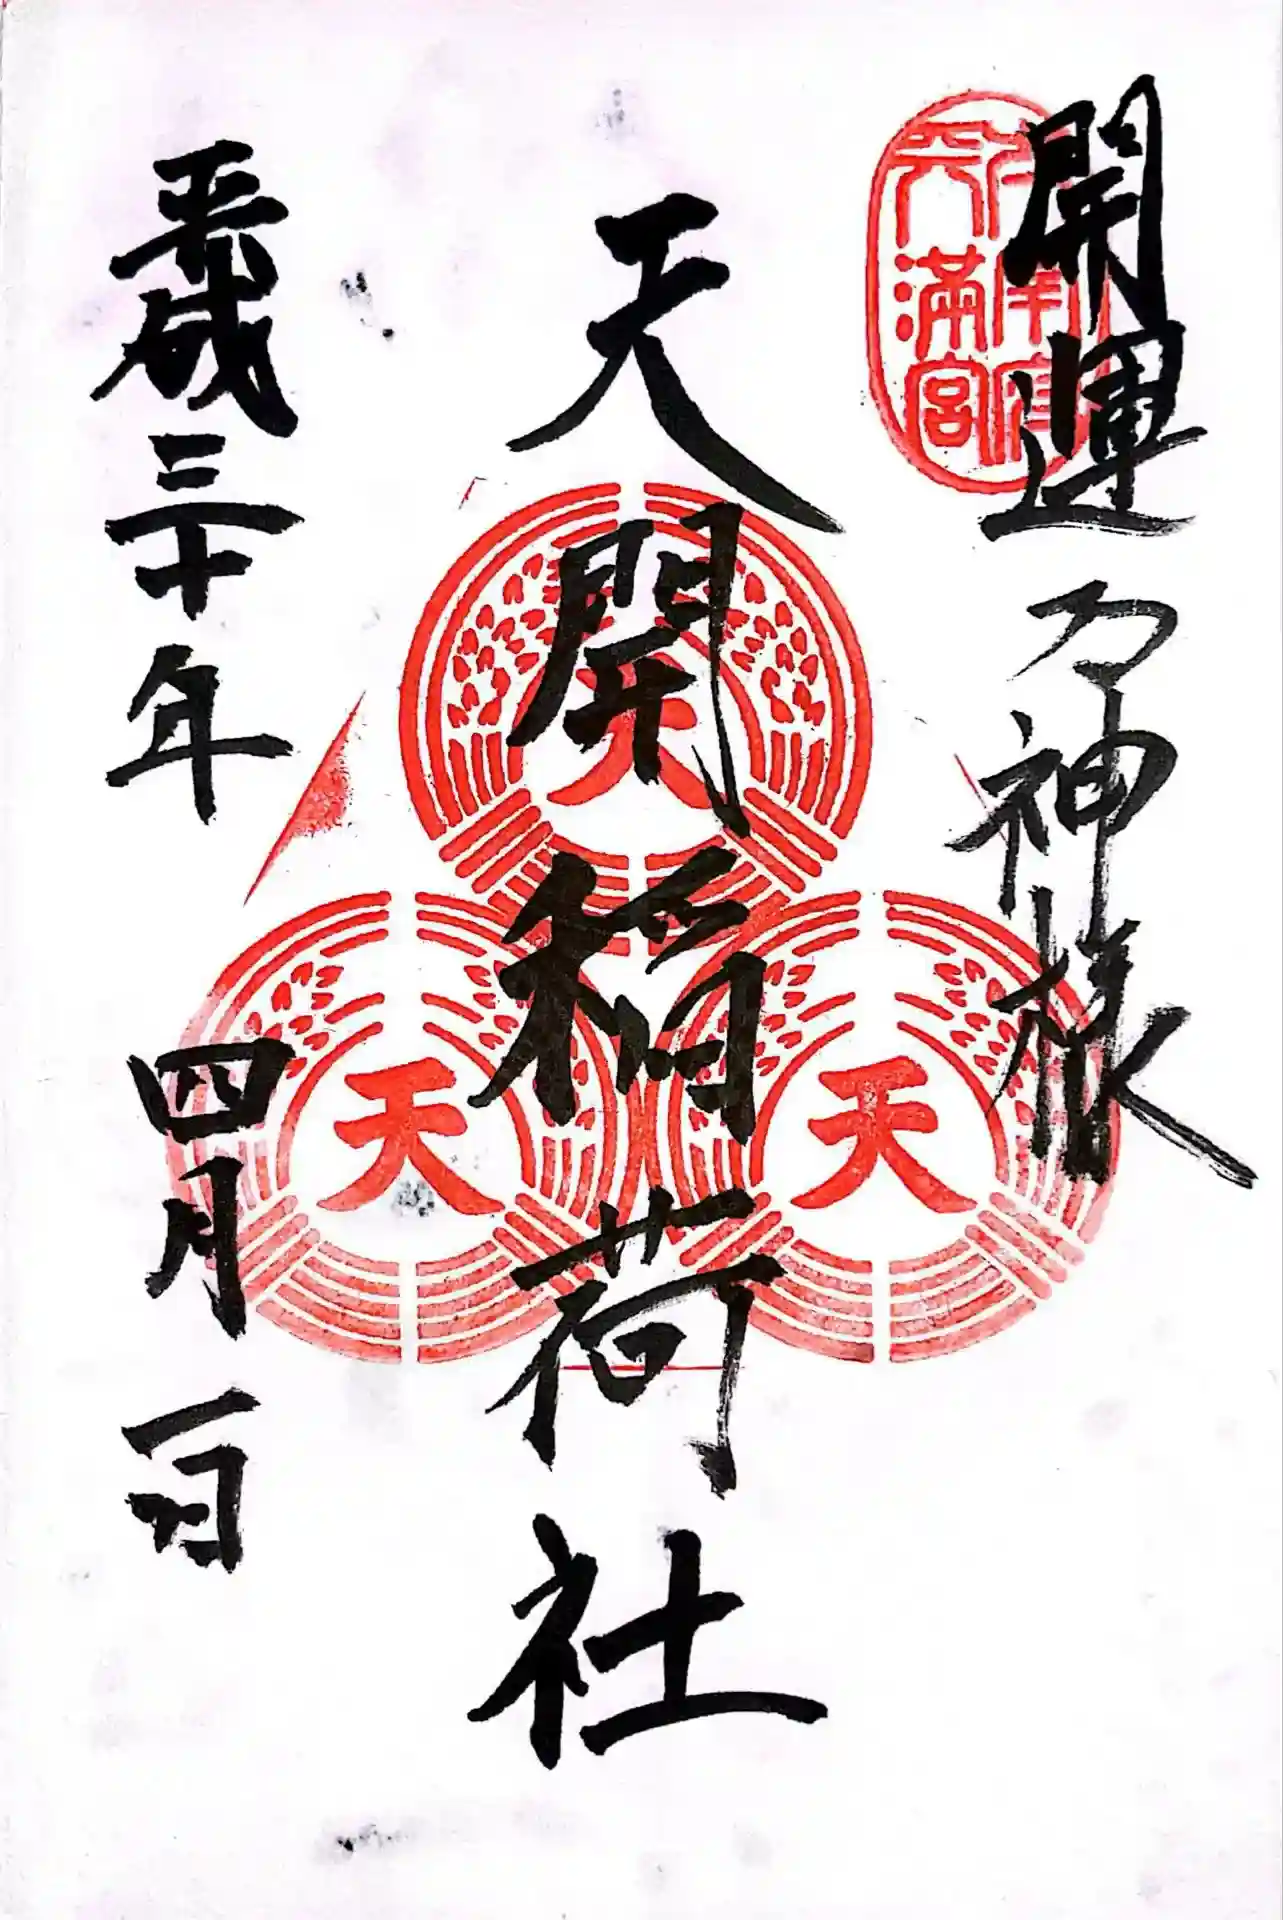 開運乃神様
天滿宮
天開稲荷社
天
天
天
平成三十年 四月一日